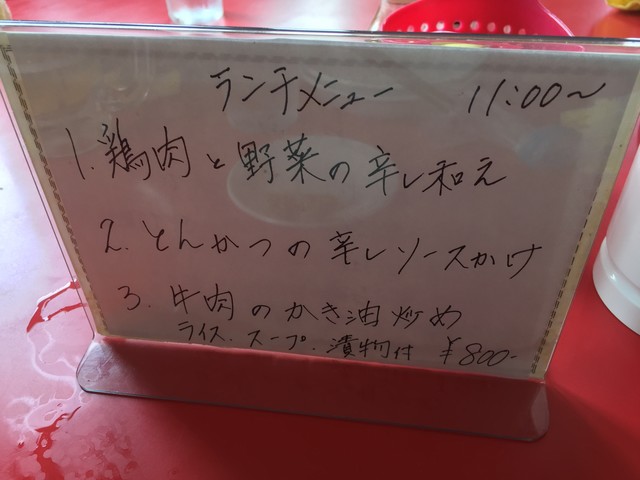 ランチメニュー 11:00〜
1. 鶏肉と野菜の辛し和え
2. とんかつの辛しソースかけ
3. 牛肉のかき油炒め
ライス.スープ.漬物付 ¥800-